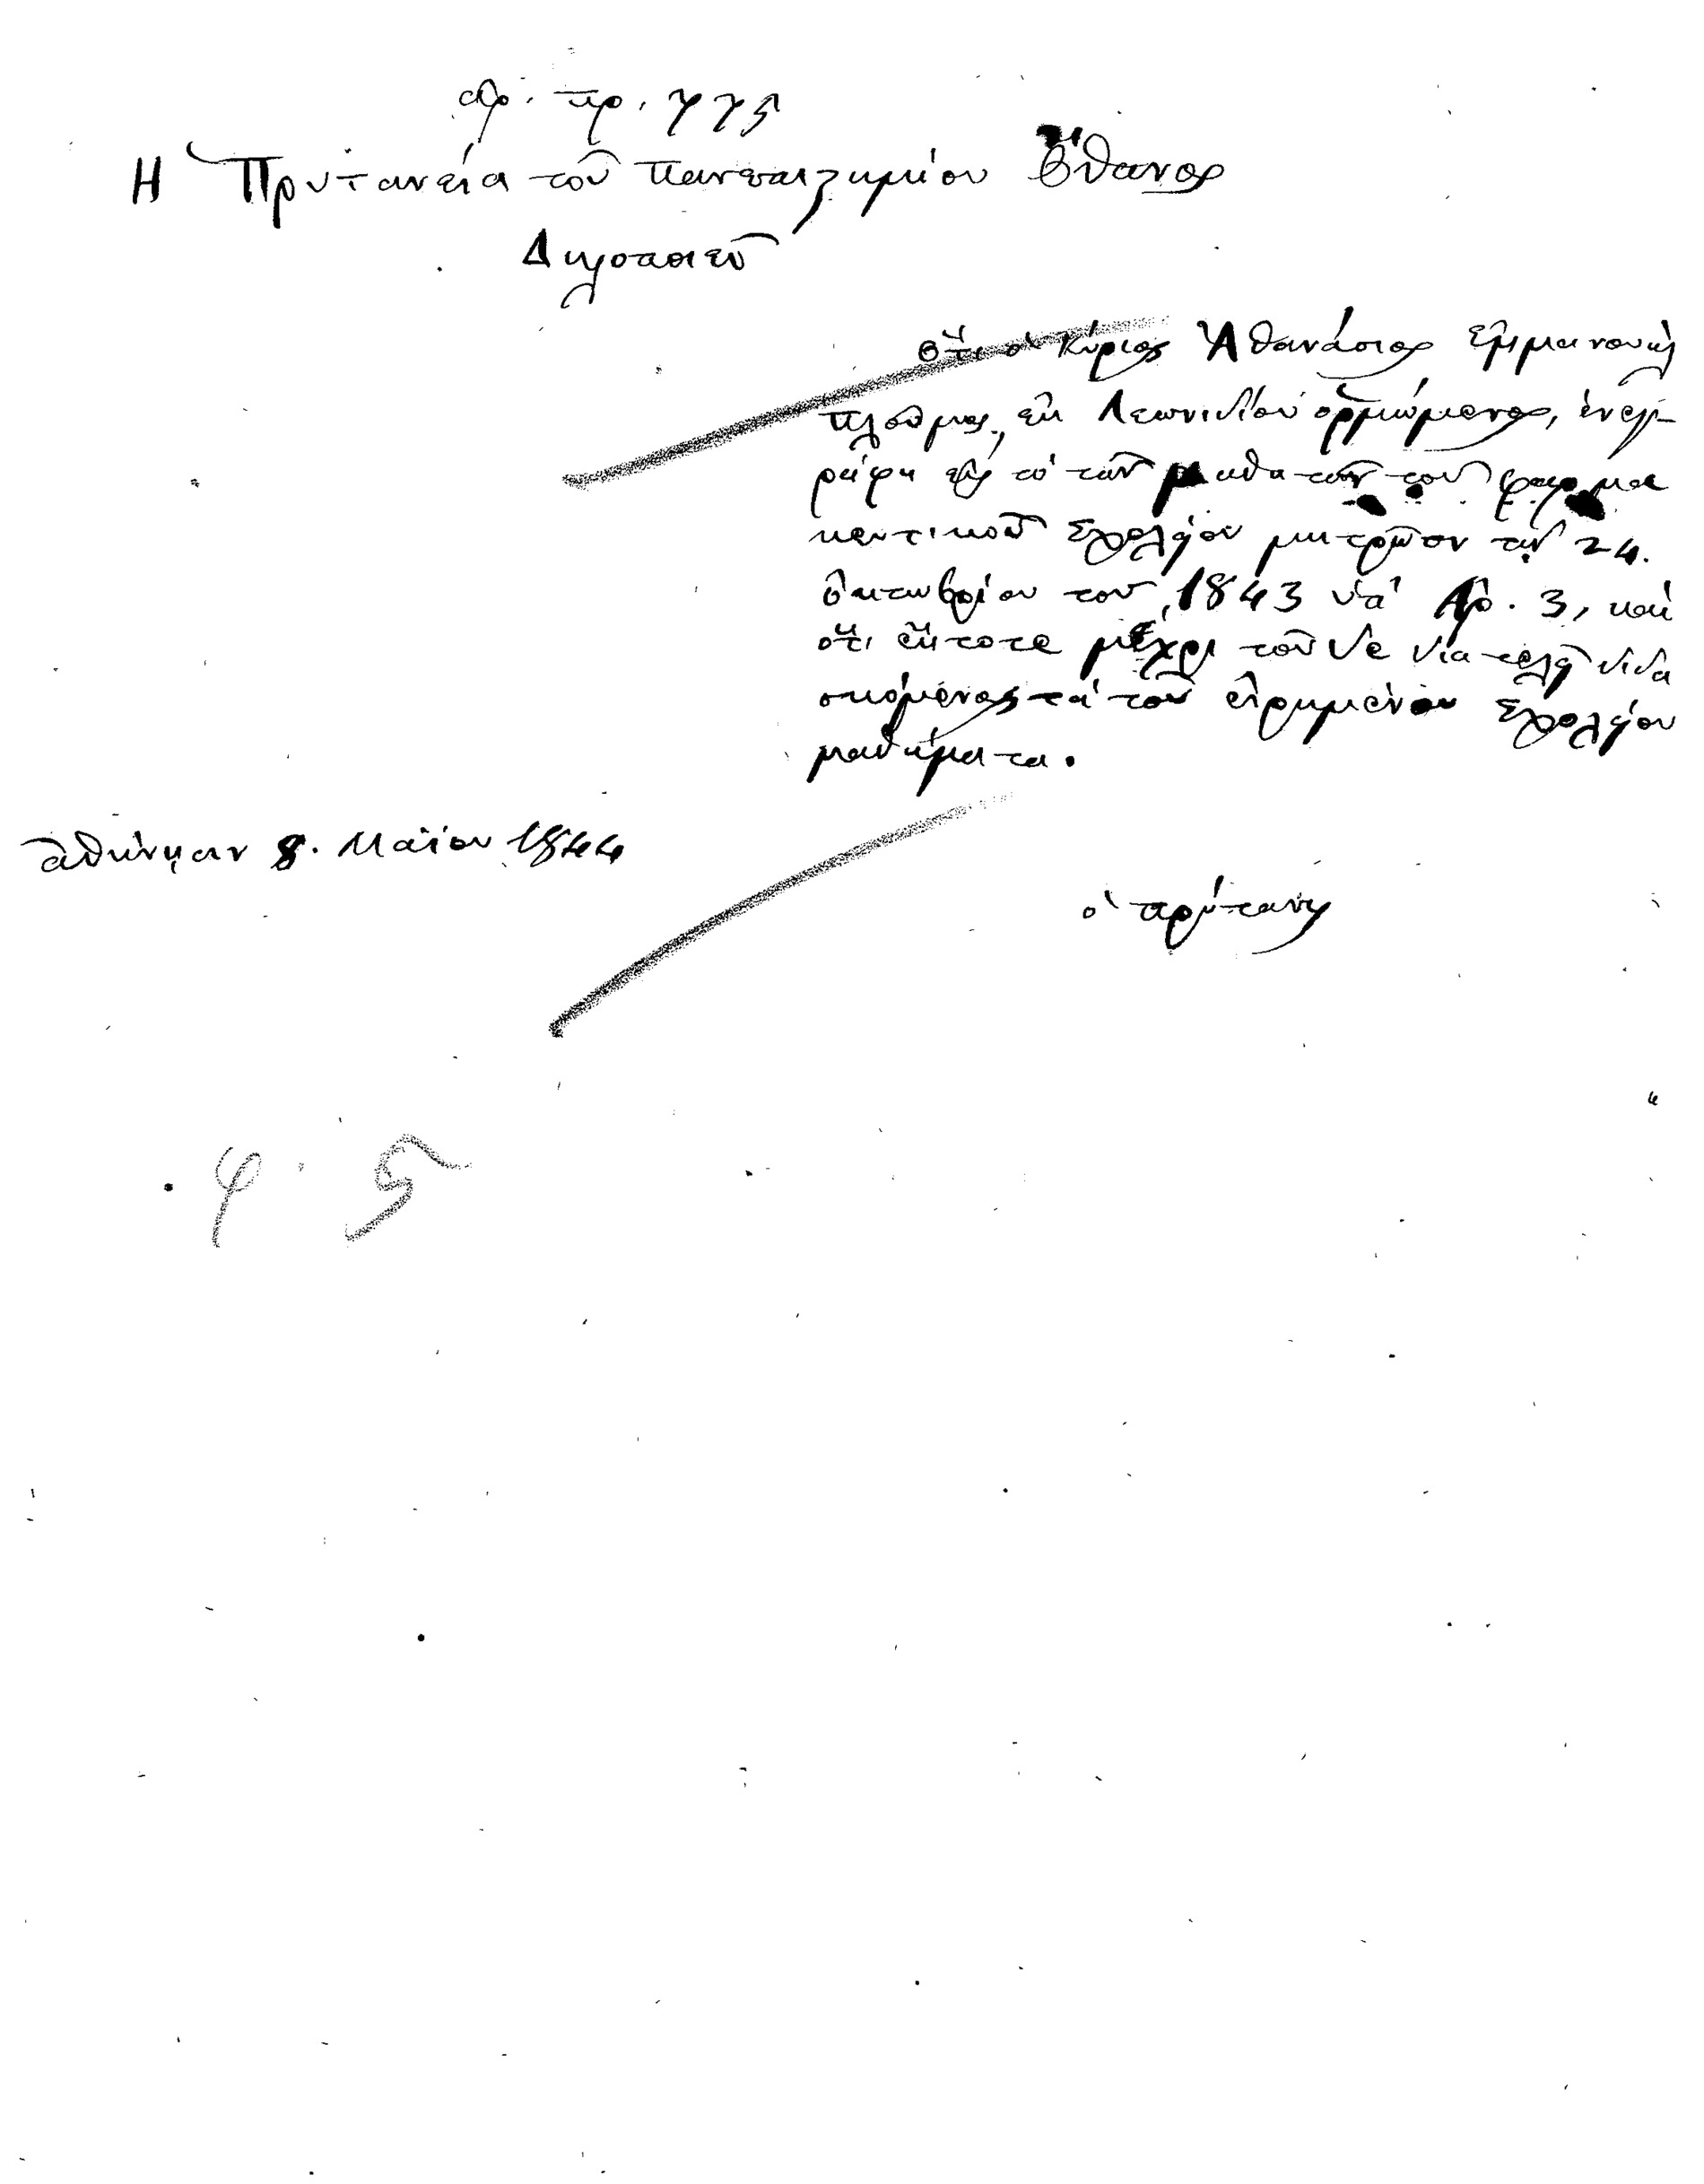 ἀρ. πρ. 775
Η Πρυτανεία τοῦ Πανεπιστημίου Ὄθωνος
Δηλοποιεῖ
ὅτι ὁ Κύριος Ἀθανάσιος Ἐμμανουὴλ
ἐκ Λεωνιδίου ὁρμώμενος, ἐνεγ-
ράφη εἰς τὸ τῶν μαθητῶν τοῦ φαρμα
κευτικοῦ Σχολείου μητρῶον τὴν 24.
ὀκτωβρίου τοῦ 1843 ὑπ' Ἀρ. 3, καὶ
ὅτι ἔκτοτε μέχρι τοῦδε διατελεῖ διδα
σκόμενος τὰ τοῦ εἰρημένου Σχολείου
μαθήματα.
ἀθήνησιν 8. Μαΐου 1844
ὁ πρύτανις
φ. 5